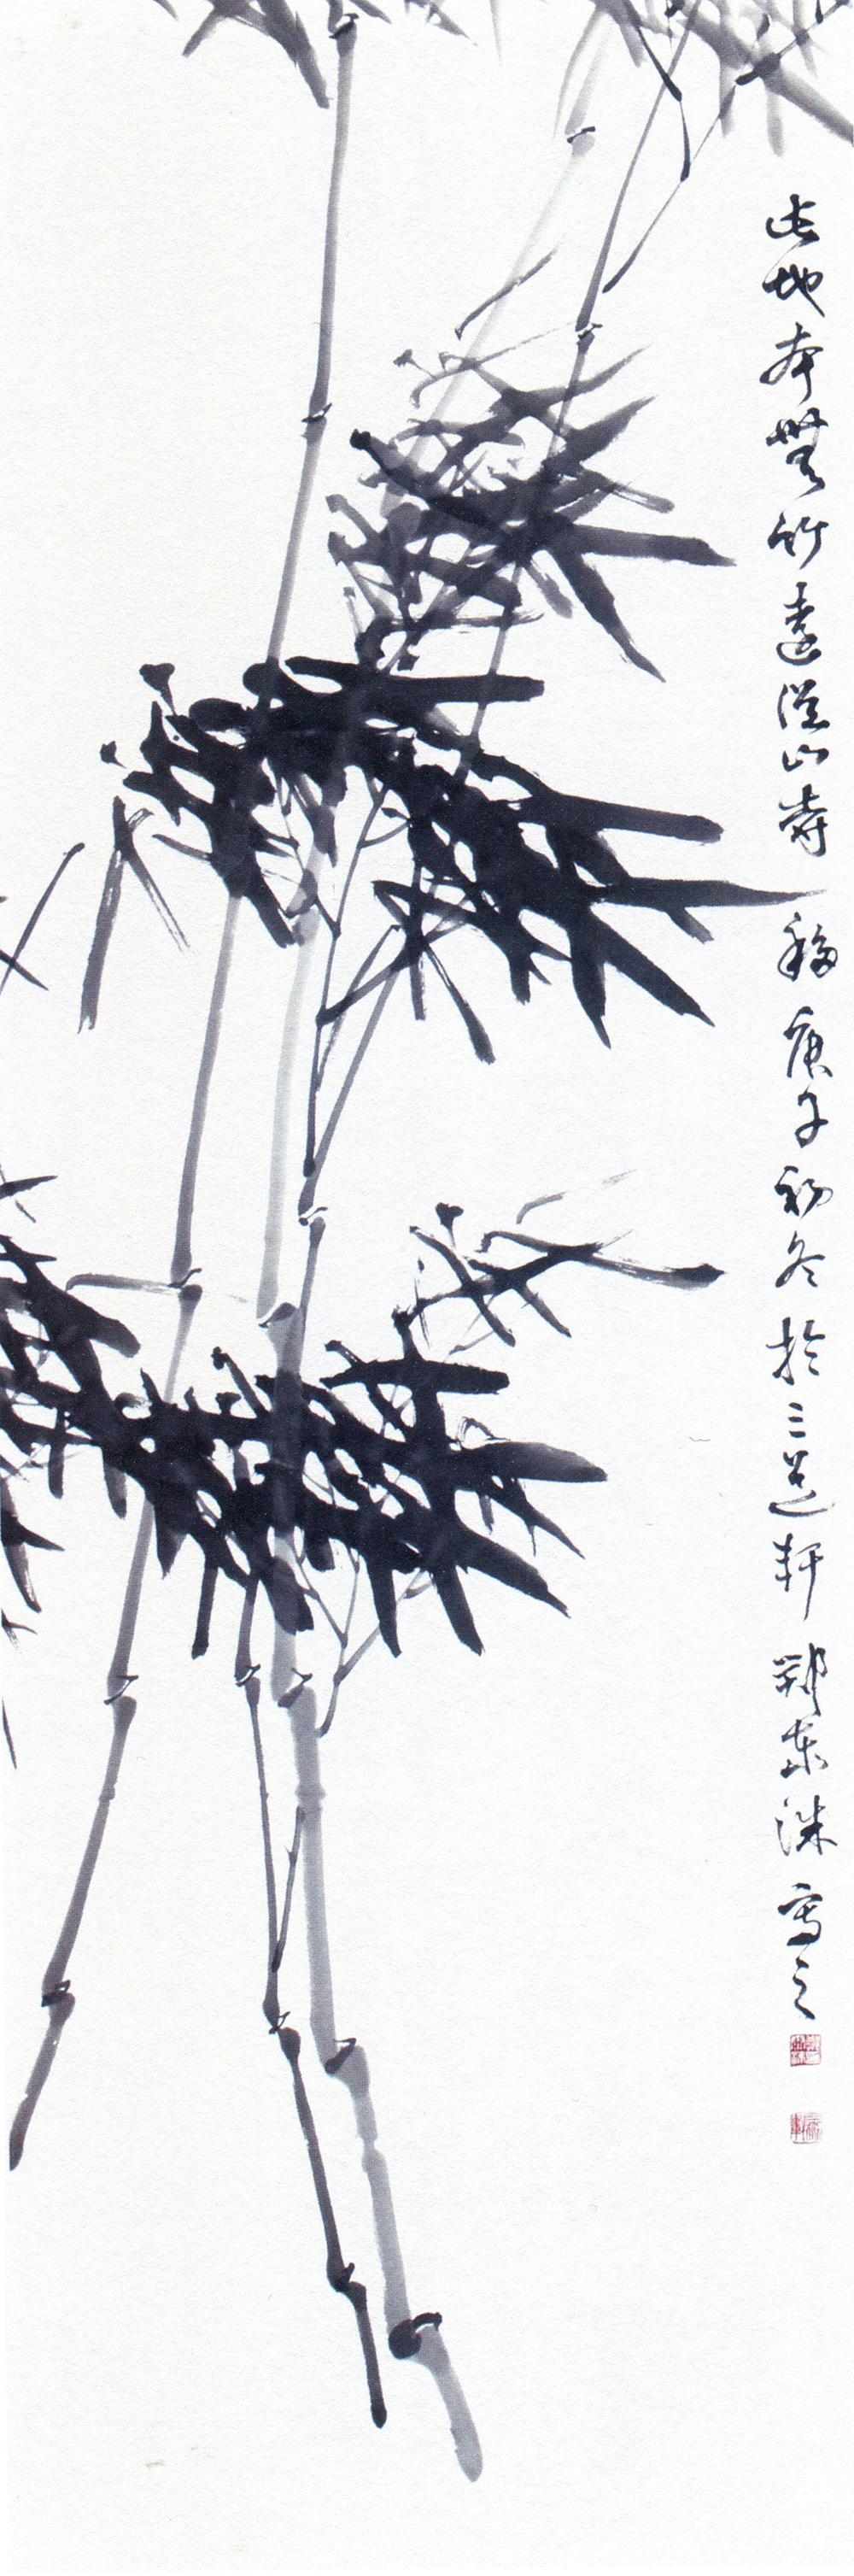 此地本無竹遠從山寺移庚子初冬於三道軒鄭東洙寫之